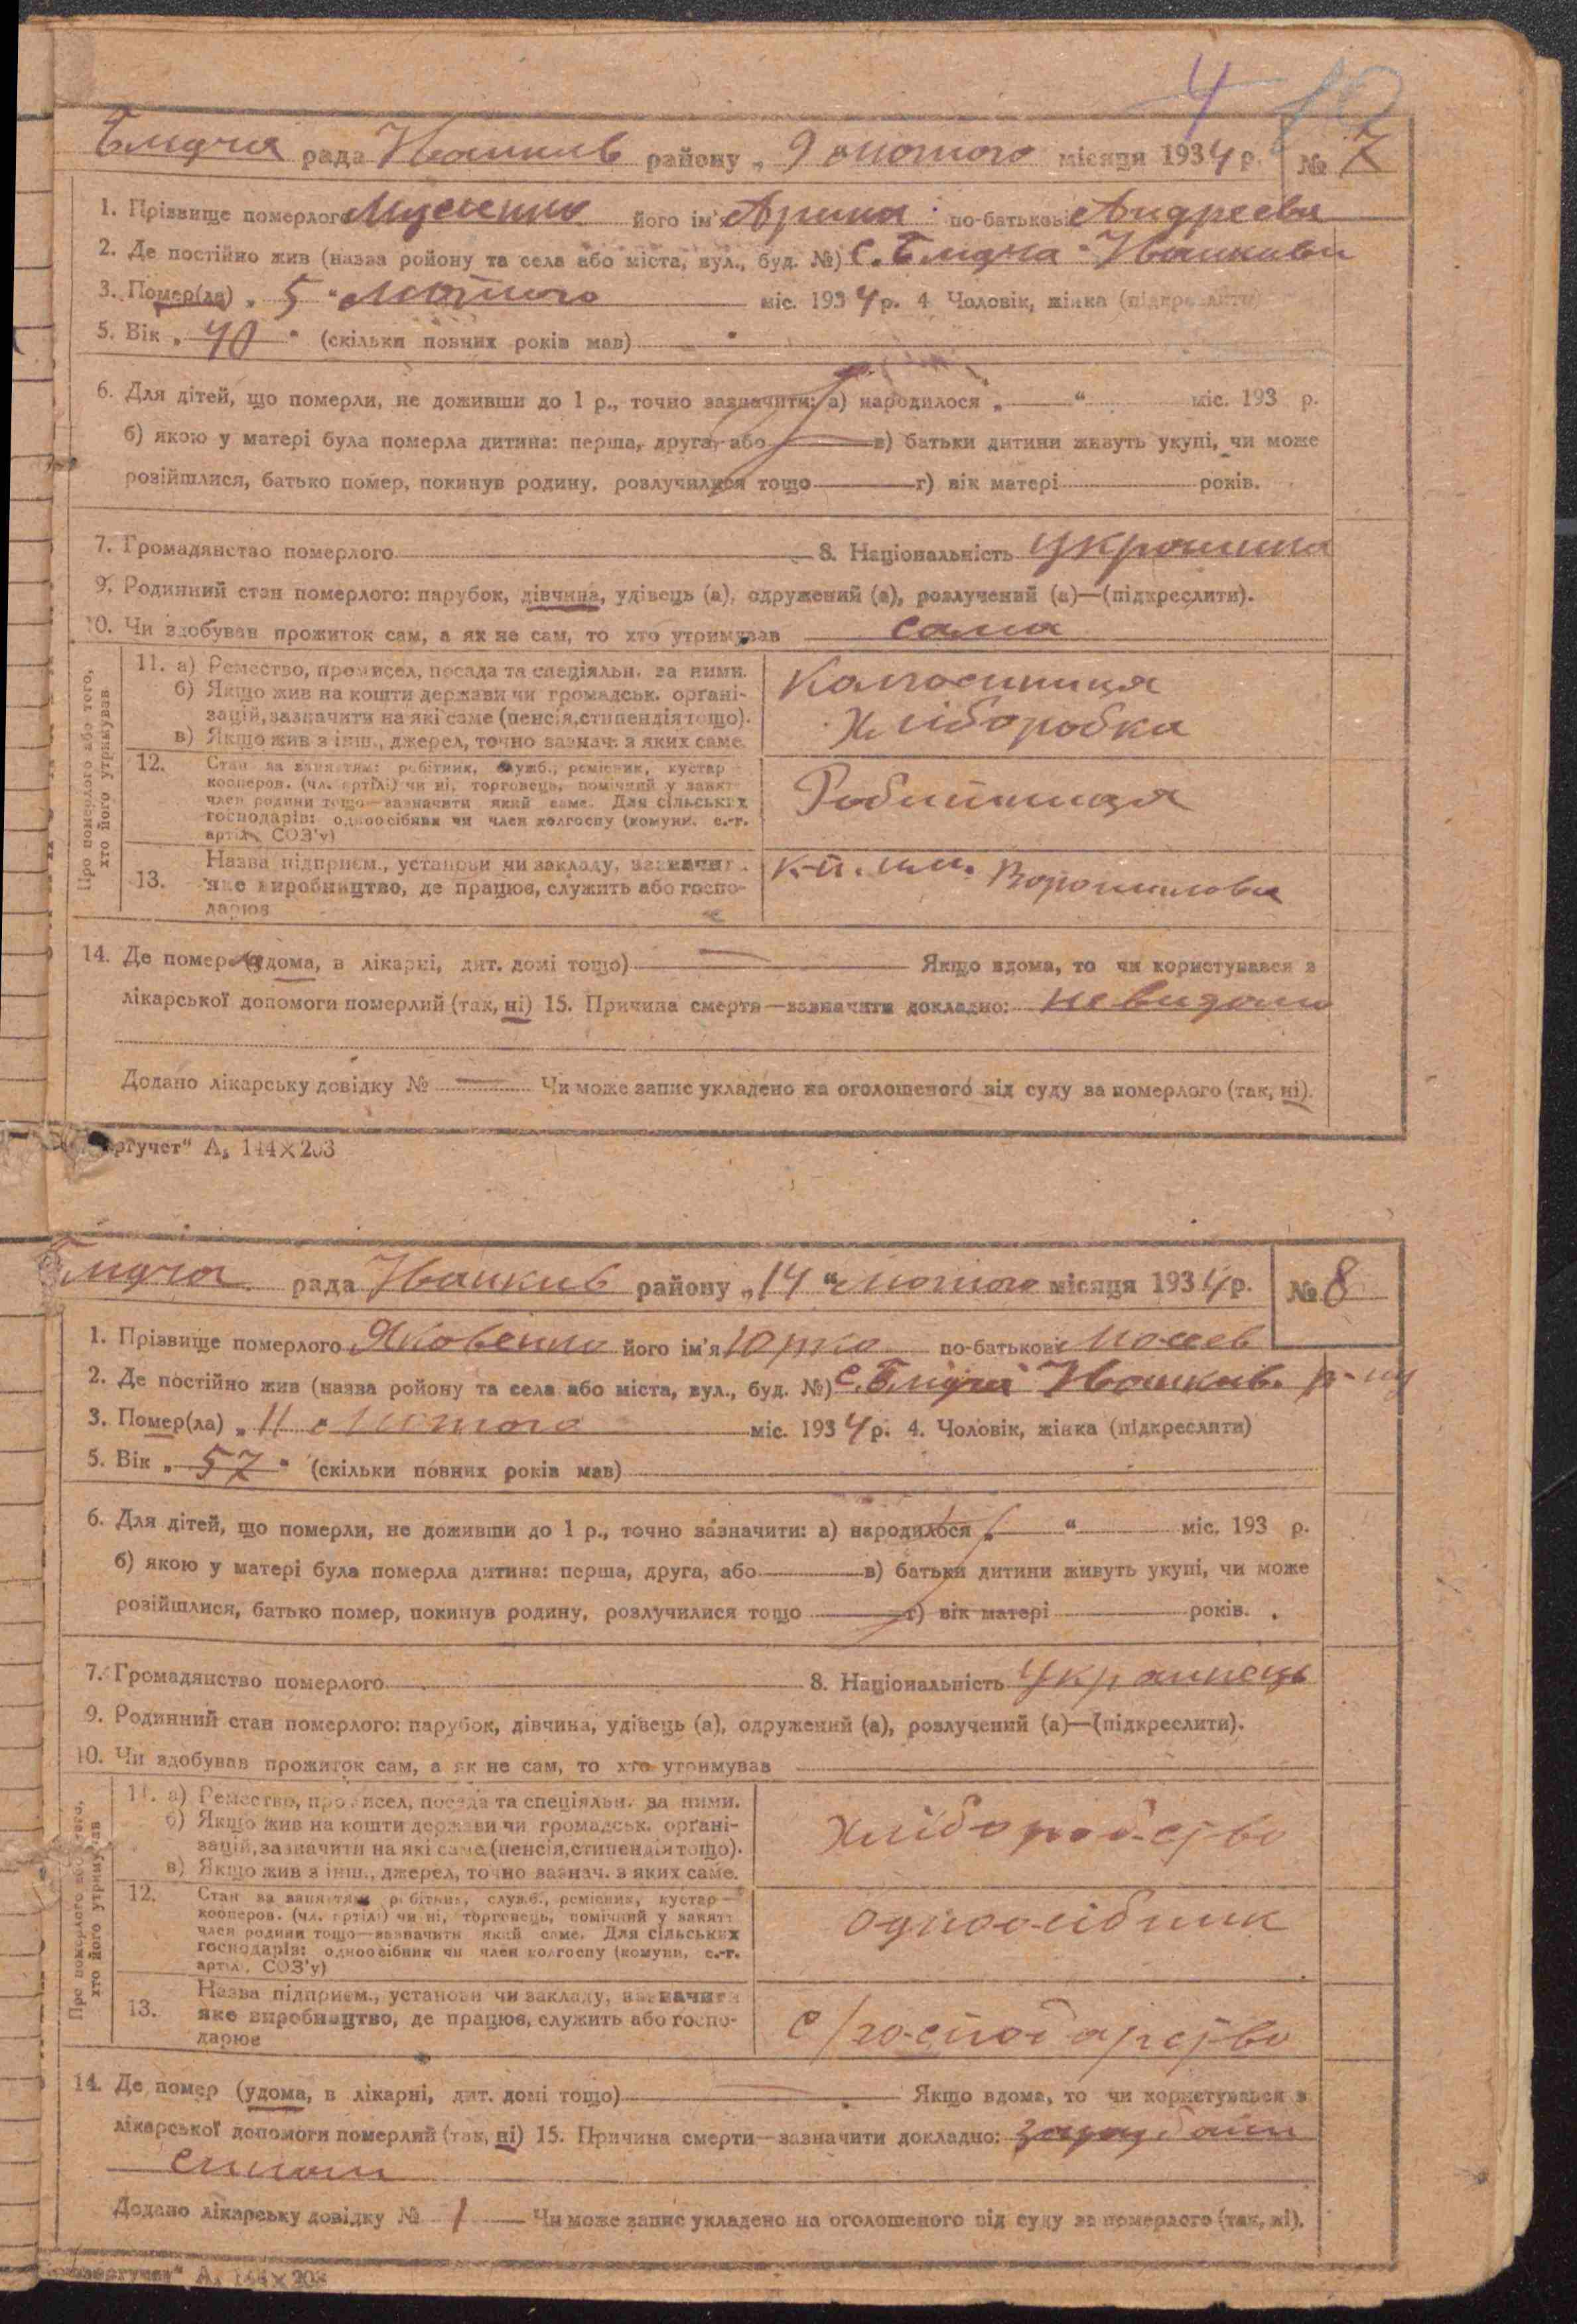 4 10
Блидча рада Іванків району „ 9 " лютого місяця 1934 р. № 7
1. Прізвище померлого Мусієнко його ім'я Арина по-батькові Андреєва
2. Де постійно жив (назва ройону та села або міста, вул., буд. №) с. Блидча Іванків
3. Помер(ла) „ 5 " лютого міс. 1934 р. 4 Чоловік, жінка (підкреслити)
5. Вік „ 40 " (скільки повних років мав)
6. Для дітей, що померли, не доживши до 1 р., точно зазначити: а) народилося „ " міс. 193 р.
б) якою у матері була померла дитина: перша, друга, або в) батьки дитини живуть укупі, чи може
розійшлися, батько помер, покинув родину, розлучилися тощо г) вік матері років.
7. Громадянство померлого 8. Національність Українка
9. Родинний стан померлого: парубок, дівчина, удівець (а), одружений (а), розлучений (а)—(підкреслити).
10. Чи здобував прожиток сам, а як не сам, то хто утримував сама
Про померлого або того, хто його утримував
11. а) Ремество, промисел, посада та спеціяльн. за ними.
б) Якщо жив на кошти держави чи громадськ. орґані-
зацій, зазначити на які саме (пенсія, стипендія тощо).
в) Якщо жив з інш., джерел, точно зазнач. з яких саме.
Колгоспниця
Хліборобка
12. Стан за заняттям: робітник, служб., ремісник, кустар—
кооперов. (чл. артілі) чи ні, торговець, помічний у занят.
член родини тощо—зазначити який саме. Для сільських
господарів: одноосібник чи член колгоспу (комуни, с.-г.
артіл., СОЗ'у)
Робітниця
13. Назва підприєм., установи чи закладу, зазначити
яке виробництво, де працює, служить або госпо-
дарює
к-п. им. Ворошилова
14. Де помер (удома, в лікарні, дит. домі тощо) Якщо вдома, то чи користувався з
лікарської допомоги померлий (так, ні) 15. Причина смерти—зазначити докладно: не видомо
Додано лікарську довідку № Чи може запис укладено на оголошеного від суду за померлого (так, ні).
ргучет" А₅ 144×203
Блидча рада Іванків району „ 14 " лютого місяця 1934 р. № 8
1. Прізвище померлого Яковенко його ім'я Юрко по-батькові Мосев
2. Де постійно жив (назва ройону та села або міста, вул., буд. №) с. Блидча Іванків. р-ну
3. Помер(ла) „ 11 " лютого міс. 1934 р. 4. Чоловік, жінка (підкреслити)
5. Вік „ 57 " (скільки повних років мав)
6. Для дітей, що померли, не доживши до 1 р., точно зазначити: а) народилося „ " міс. 193 р.
б) якою у матері була померла дитина: перша, друга, або в) батьки дитини живуть укупі, чи може
розійшлися, батько помер, покинув родину, розлучилися тощо г) вік матері років.
7. Громадянство померлого 8. Національність Українець
9. Родинний стан померлого: парубок, дівчина, удівець (а), одружений (а), розлучений (а)—(підкреслити).
10. Чи здобував прожиток сам, а як не сам, то хто утримував
Про померлого або того, хто його утримував
11. а) Ремество, промисел, посада та спеціяльн. за ними.
б) Якщо жив на кошти держави чи громадськ. орґані-
зацій, зазначити на які саме (пенсія, стипендія тощо).
в) Якщо жив з інш., джерел, точно зазнач. з яких саме.
Хліборобство
12. Стан за заняттям робітник, служб., ремісник, кустар—
кооперов. (чл. артілі) чи ні, торговець, помічний у занят.
член родини тощо—зазначити який саме. Для сільських
господарів: одноосібник чи член колгоспу (комуни, с.-г.
артіл., СОЗ'у)
одноосібник
13. Назва підприєм., установи чи закладу, зазначити
яке виробництво, де працює, служить або госпо-
дарює
с/господарство
14. Де помер (удома, в лікарні, дит. домі тощо) Якщо вдома, то чи користувався з
лікарської допомоги померлий (так, ні) 15. Причина смерти—зазначити докладно:
Додано лікарську довідку № 1 Чи може запис укладено на оголошеного від суду за померлого (так, ні).
А₅ 144×203